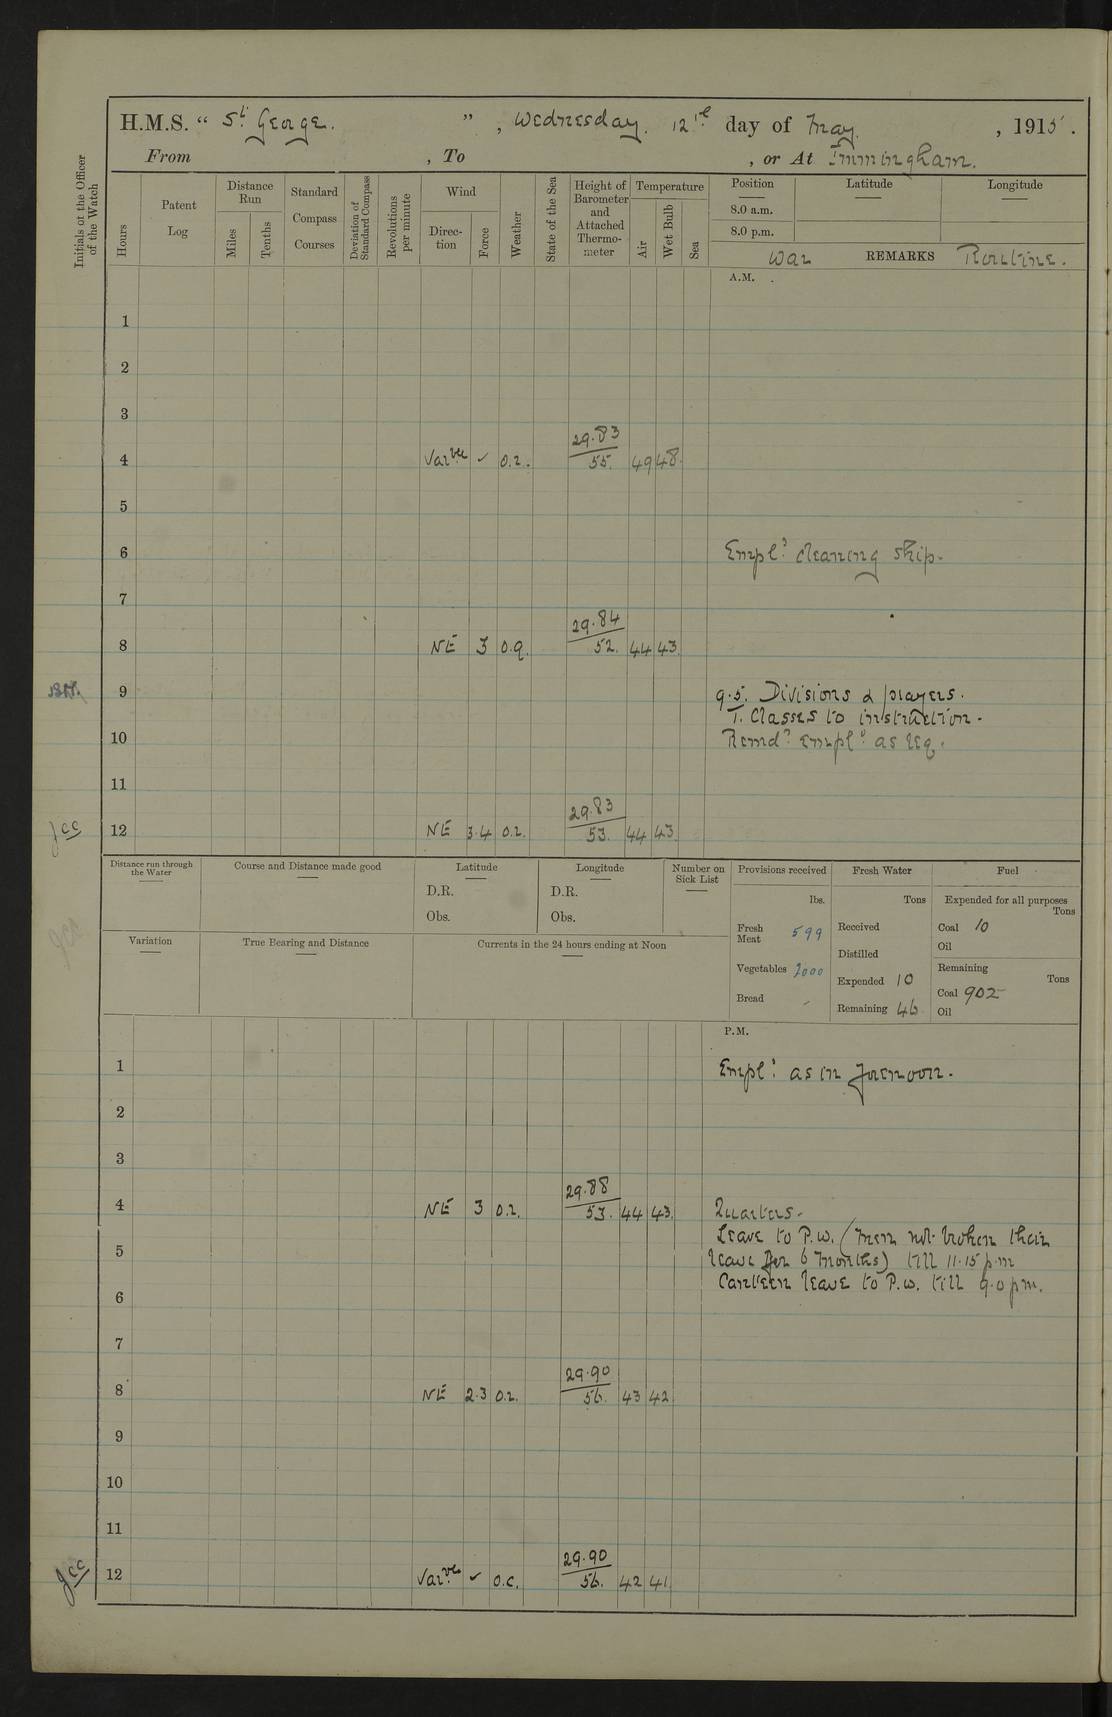 H.M.S. " St. George. ", Wednesday. 12th day of May, 1915.
From , To , or At Immingham.
Initials of the Officer of the Watch
Hours
Patent Log
Distance Run
Miles
Tenths
Standard Compass Courses
Deviation of Standard Compass
Revolutions per minute
Wind
Direction
Force
Weather
State of the Sea
Height of Barometer and Attached Thermometer
Temperature
Air
Wet Bulb
Sea
Position
Latitude
Longitude
8.0 a.m.
8.0 p.m.
War REMARKS Routine.
A.M.
1
2
3
29.83
4 Varble ✓ o.r. 55. 49 48.
5
6 Empld cleaning ship.
7
29.84
8 NE 3 o.q. 52. 44 43.
9 9.5. Divisions & prayers.
T. Classes to instruction.
10 Remdr Empld as req.
11
29.83
Jcc 12 NE 3.4 o.r. 53. 44 43.
Distance run through the Water
Course and Distance made good
Latitude
D.R.
Obs.
Longitude
D.R.
Obs.
Number on Sick List
Provisions received
lbs.
Fresh Meat 599
Vegetables 2000
Bread -
Fresh Water
Tons
Received
Distilled
Expended 10
Remaining 46
Fuel
Expended for all purposes
Tons
Coal 10
Oil
Remaining
Tons
Coal 902
Oil
Variation
True Bearing and Distance
Currents in the 24 hours ending at Noon
P.M.
1 Empld as in forenoon.
2
3
29.88
4 NE 3 o.r. 53. 44 43. Quarters.
Leave to P.W. (men not broken their
5 leave for 6 months) till 11.15 p.m
Canteen leave to P.W. till 9.0 pm.
6
7
29.90
8 NE 2.3 o.r. 56. 43 42.
9
10
11
29.90
Jcc 12 Varble ✓ o.c. 56. 42 41.